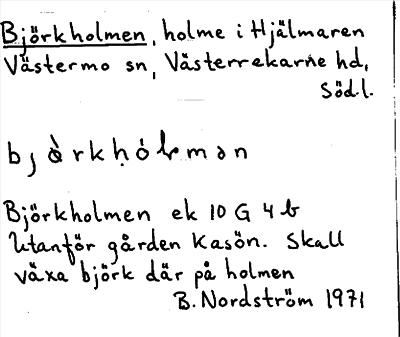 Björkholmen, holme i Hjälmaren
Västermo sn, Västerrekarne hd,
Söd.l.
bjòrkhólmən
Björkholmen ek 10 G 4 b
Utanför gården Kasön. Skall
växa björk där på holmen
B. Nordström 1971